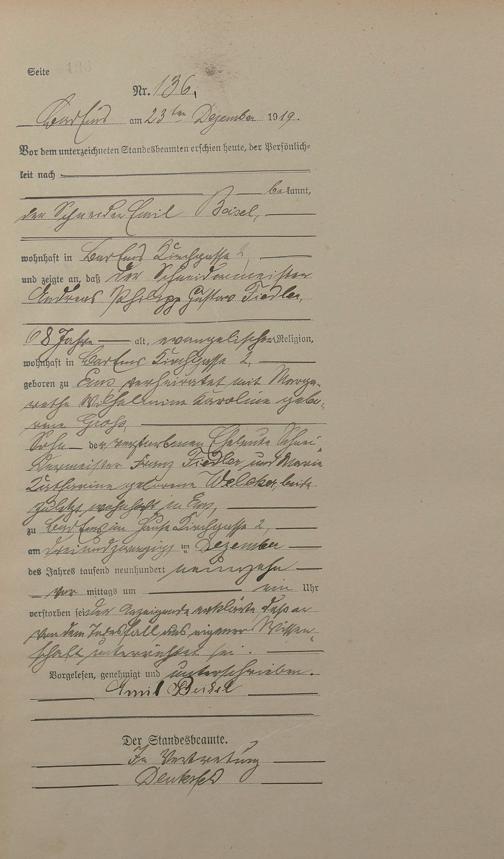 Seite 136
Nr. 136,
Bad Ems am 23ten Dezember 1919.
Vor dem unterzeichneten Standesbeamten erschien heute, der Persönlich-
keit nach
bekannt,
der Schneider Emil Beisel,
wohnhaft in Bad Ems Kirchgasse 2,
und zeigte an, daß der Schneidermeister
Andreas Philipp Gustav Fiedler,
68 Jahre alt, evangelischer Religion,
wohnhaft in Bad Ems Kirchgasse 2,
geboren zu Ems, verheiratet mit Marga-
rethe Wilhelmine Karoline gebo-
rene Groß,
Sohn der verstorbenen Eheleute Schnei-
dermeister Franz Fiedler und Maria
Katharine geborene Welcker, beide
zuletzt wohnhaft in Ems,
zu Bad Ems im Hause Kirchgasse 2,
am dreiundzwanzigsten Dezember
des Jahres tausend neunhundert neunzehn
vor mittags um ein Uhr
verstorben sei. Der Anzeigende erklärte, dass er
von dem Todesfall aus eigener Wissen-
schaft unterrichtet sei.
Vorgelesen, genehmigt und unterschrieben.
Emil Beisel
Der Standesbeamte.
In Vertretung